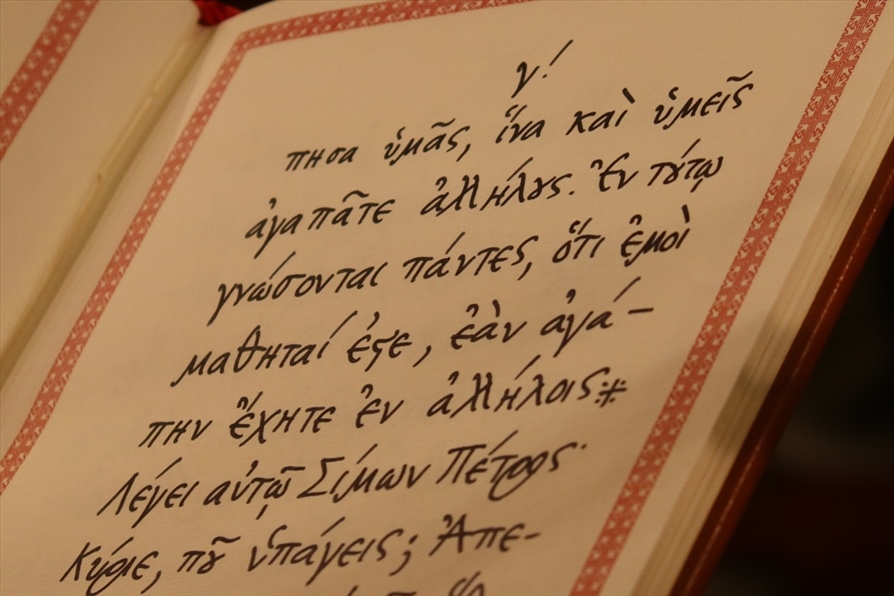 γ!
πησα ὑμᾶς, ἵνα καὶ ὑμεῖς
ἀγαπᾶτε ἀλλήλȣς. Ἐν τȣ́τῳ
γνώσονται πάντες, ὅτι ἐμοὶ
μαθηταί ἐϛε, ἐὰν ἀγά-
πην ἔχητε ἐν ἀλλήλοις⁜
Λέγει αὐτῷ Σίμων Πέτρος·
Κύριε, πȣ͂ ὑπάγεις; Ἀπε-